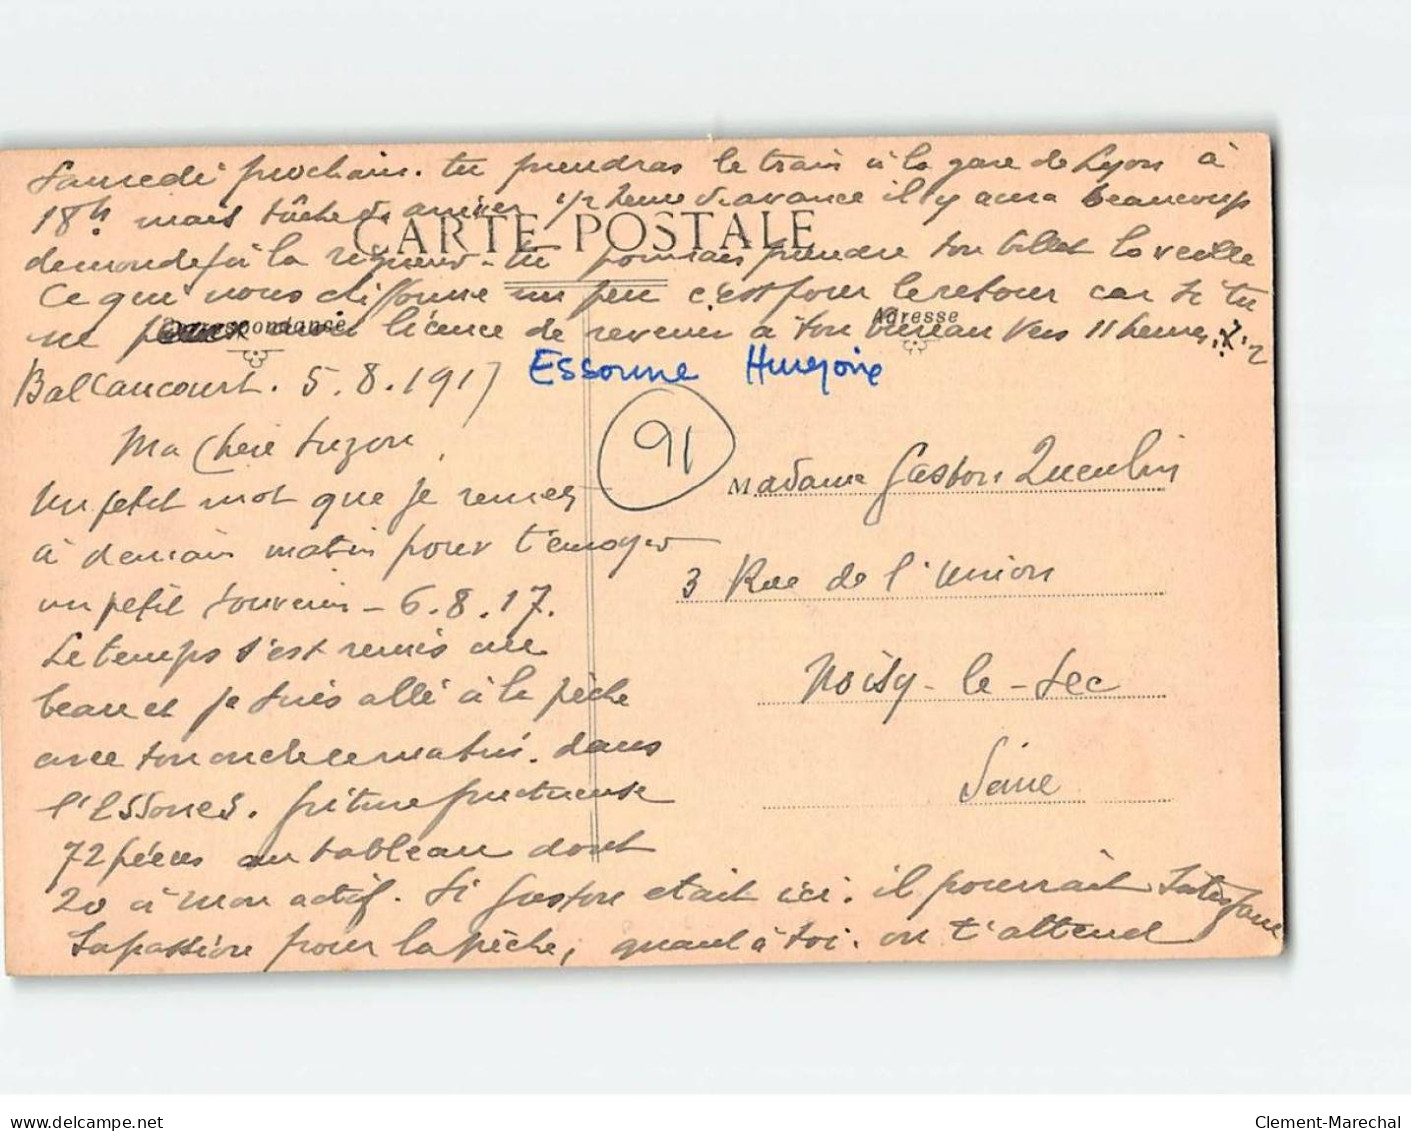 Samedi prochain. tu prendras le train à la gare de Lyon à
18h. mais tâche d'arriver 1/2 heure d'avance il y aura beaucoup
CARTE POSTALE
de monde à la . tu pourrais prendre ton billet la veille
Ce que nous chiffonne un peu c'est pour le retour car si tu
ne peux avoir licence de revenir à ton bureau vers 11 heures
Correspondance
Adresse
Ballancourt. 5.8.1917
Essonne
91
Ma chère Suzon,
Un petit mot que je remets
à demain matin pour t'envoyer
un petit souvenir - 6.8.17.
Le temps s'est remis au
beau et je suis allé à la pêche
avec ton oncle ce matin. dans
l'Essonne. friture fructueuse
72 pièces au tableau dont
20 à mon actif. Si Gaston etait ici. il pourrait satisfaire
sa passion pour la pêche, quant à toi. on t'attend
Madame Gaston Quentin
3 Rue de l'Union
Noisy-le-Sec
Seine
Clement-Marechal
www.delcampe.net